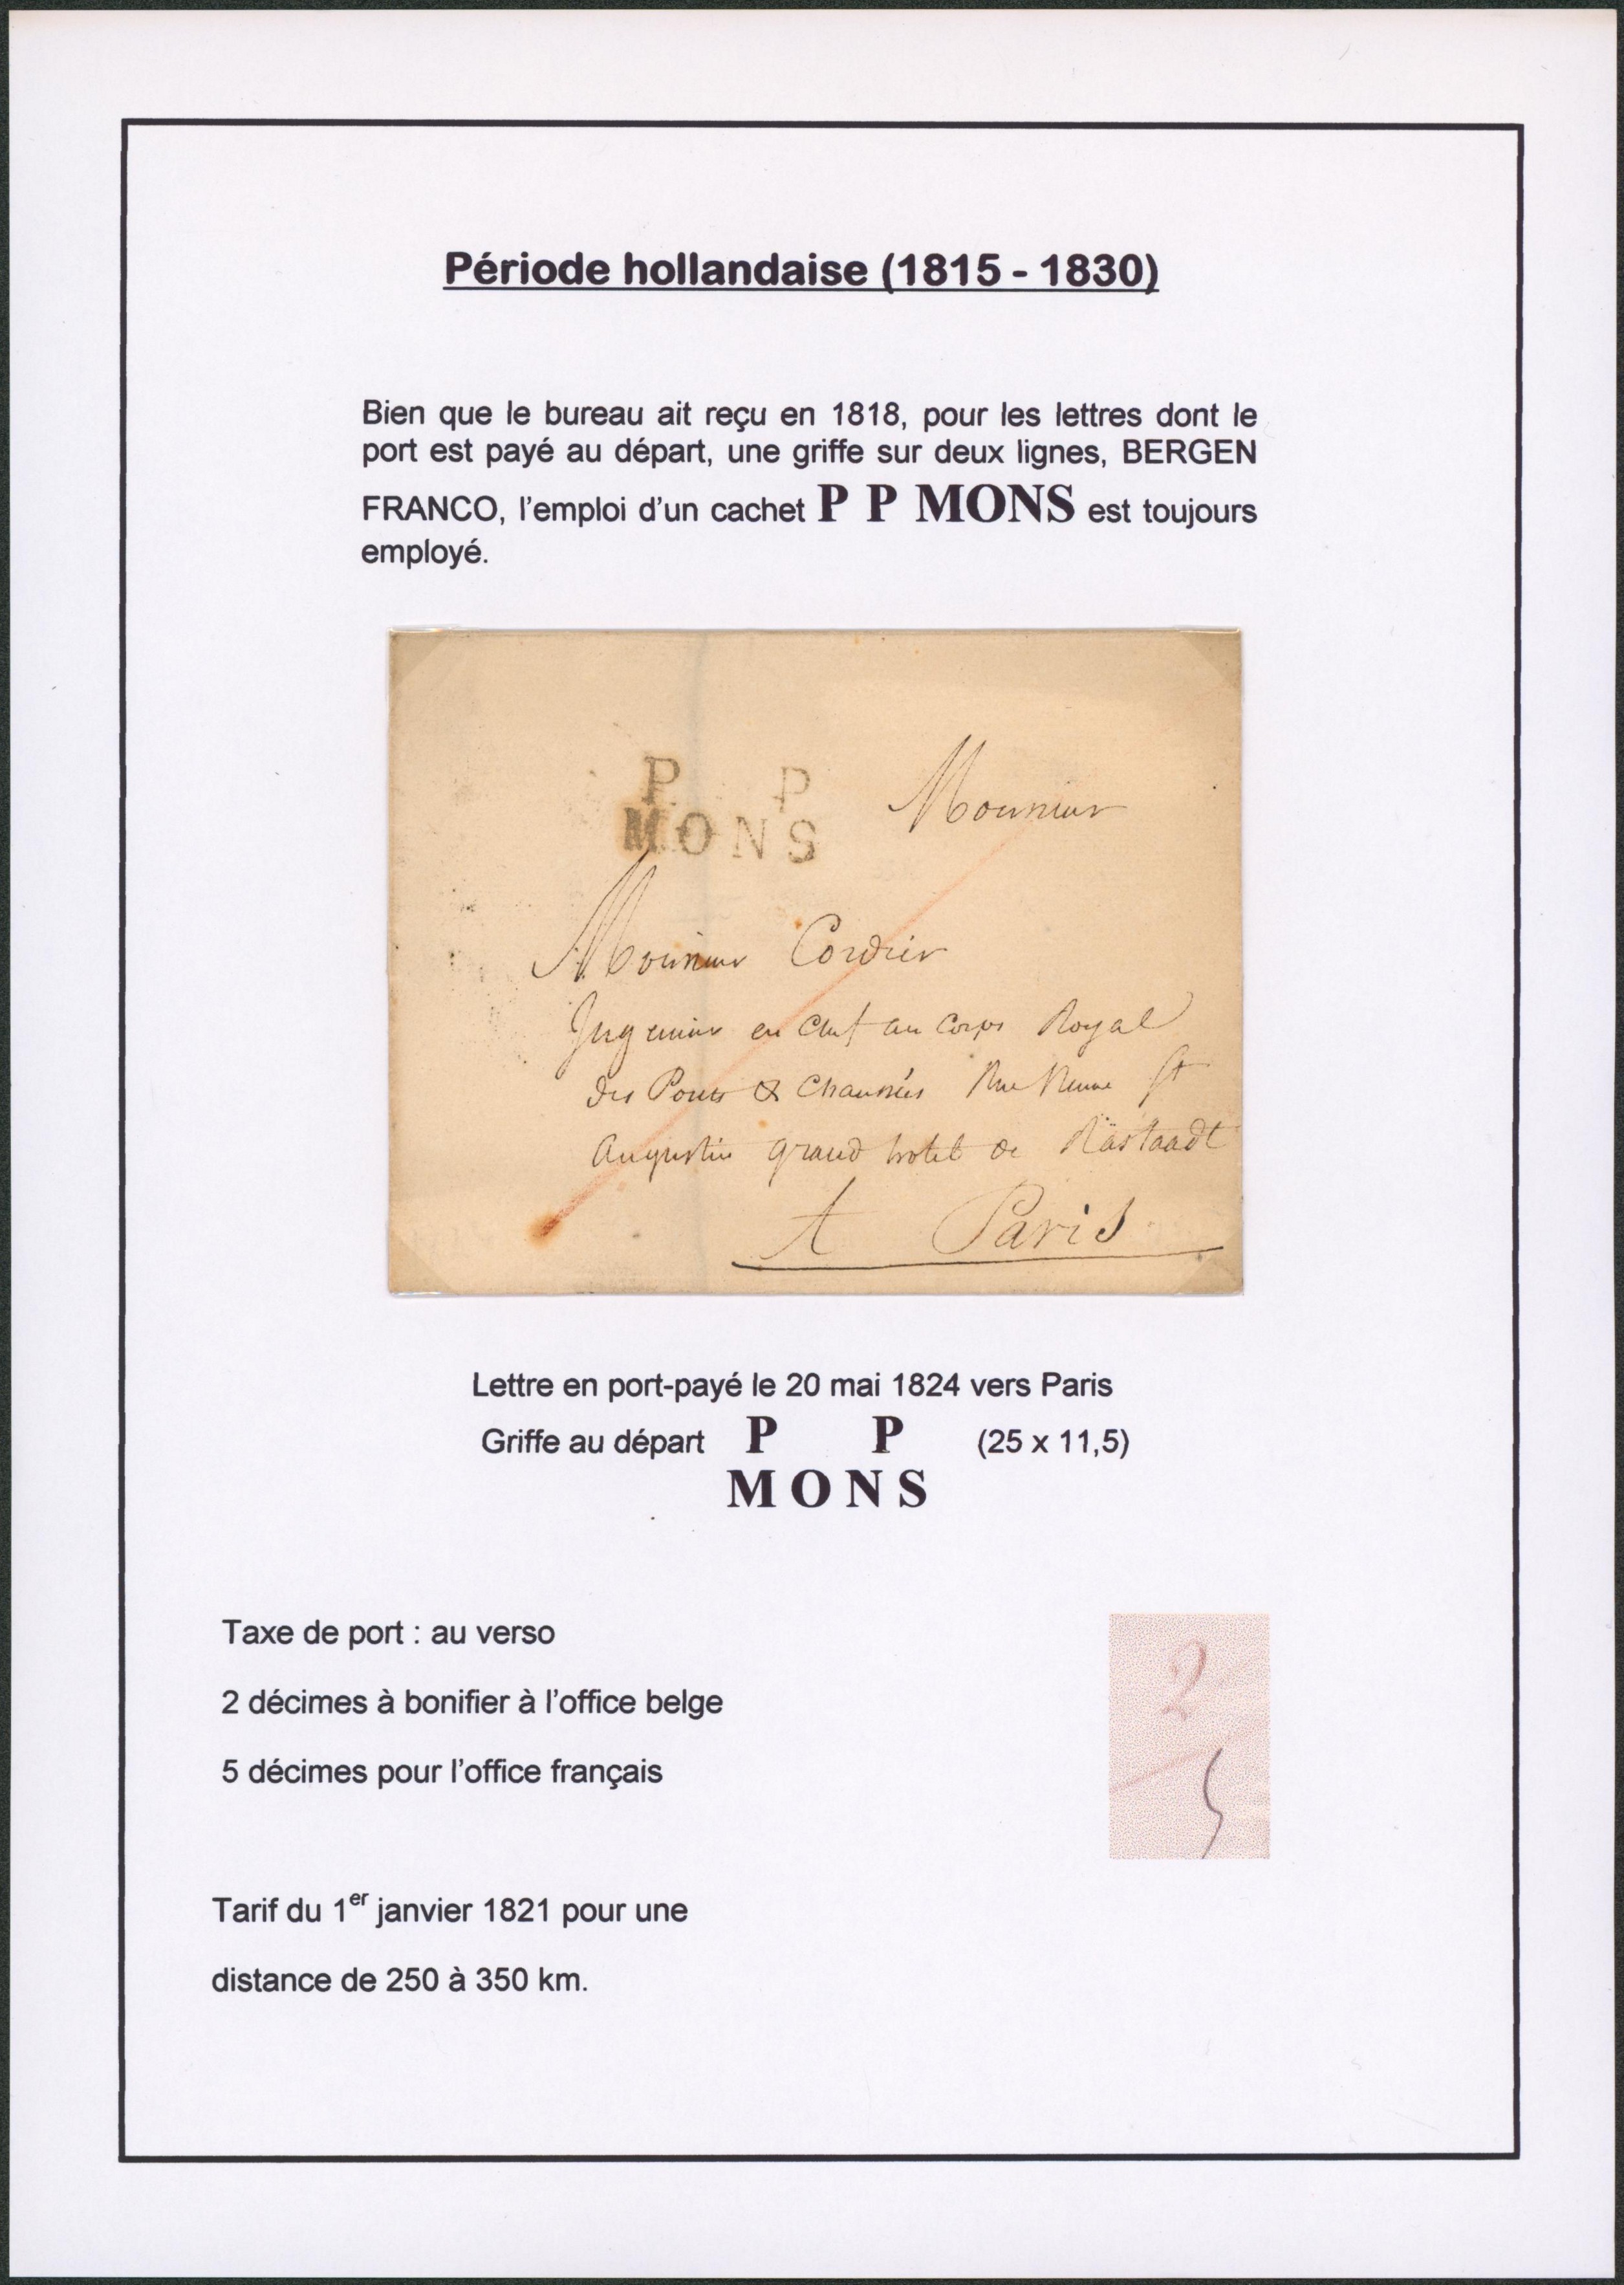 Période hollandaise (1815 - 1830)
Bien que le bureau ait reçu en 1818, pour les lettres dont le
port est payé au départ, une griffe sur deux lignes, BERGEN
FRANCO, l'emploi d'un cachet P P MONS est toujours
employé.
P P
MONS
Monsieur
Monsieur Cordier
Ingenieur en Chef au Corps Royal
des Ponts & Chaussées Rue Neuve St
Augustin grand hotel de Rastaadt
A Paris
Lettre en port-payé le 20 mai 1824 vers Paris
Griffe au départ P P (25 x 11,5)
MONS
Taxe de port : au verso
2 décimes à bonifier à l'office belge
5 décimes pour l'office français
2
5
Tarif du 1er janvier 1821 pour une
distance de 250 à 350 km.